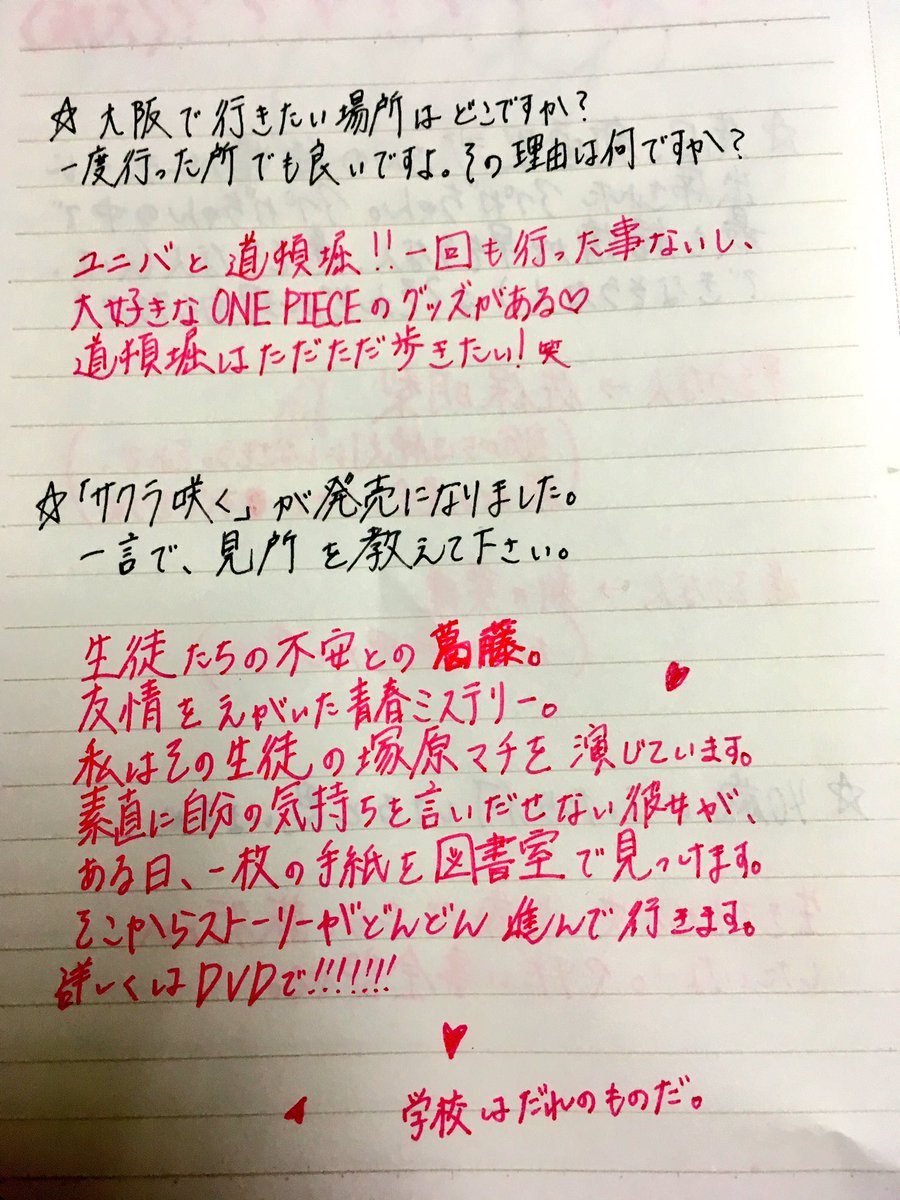 ☆ 大阪で行きたい場所はどこですか?
一度行った所でも良いですよ。その理由は何ですか?
ユニバと道頓堀!!一回も行った事ないし、
大好きなONE PIECEのグッズがある♡
道頓堀はただただ歩きたい!笑
☆「サクラ咲く」が発売になりました。
一言で、見所を教えて下さい。
生徒たちの不安との葛藤。
友情をえがいた青春ミステリー。
私はその生徒の塚原マチを演じています。
素直に自分の気持ちを言いだせない彼女が、
ある日、一枚の手紙を図書室で見つけます。
そこからストーリーがどんどん進んで行きます。
詳しくはDVDで!!!!!!!
学校はだれのものだ。